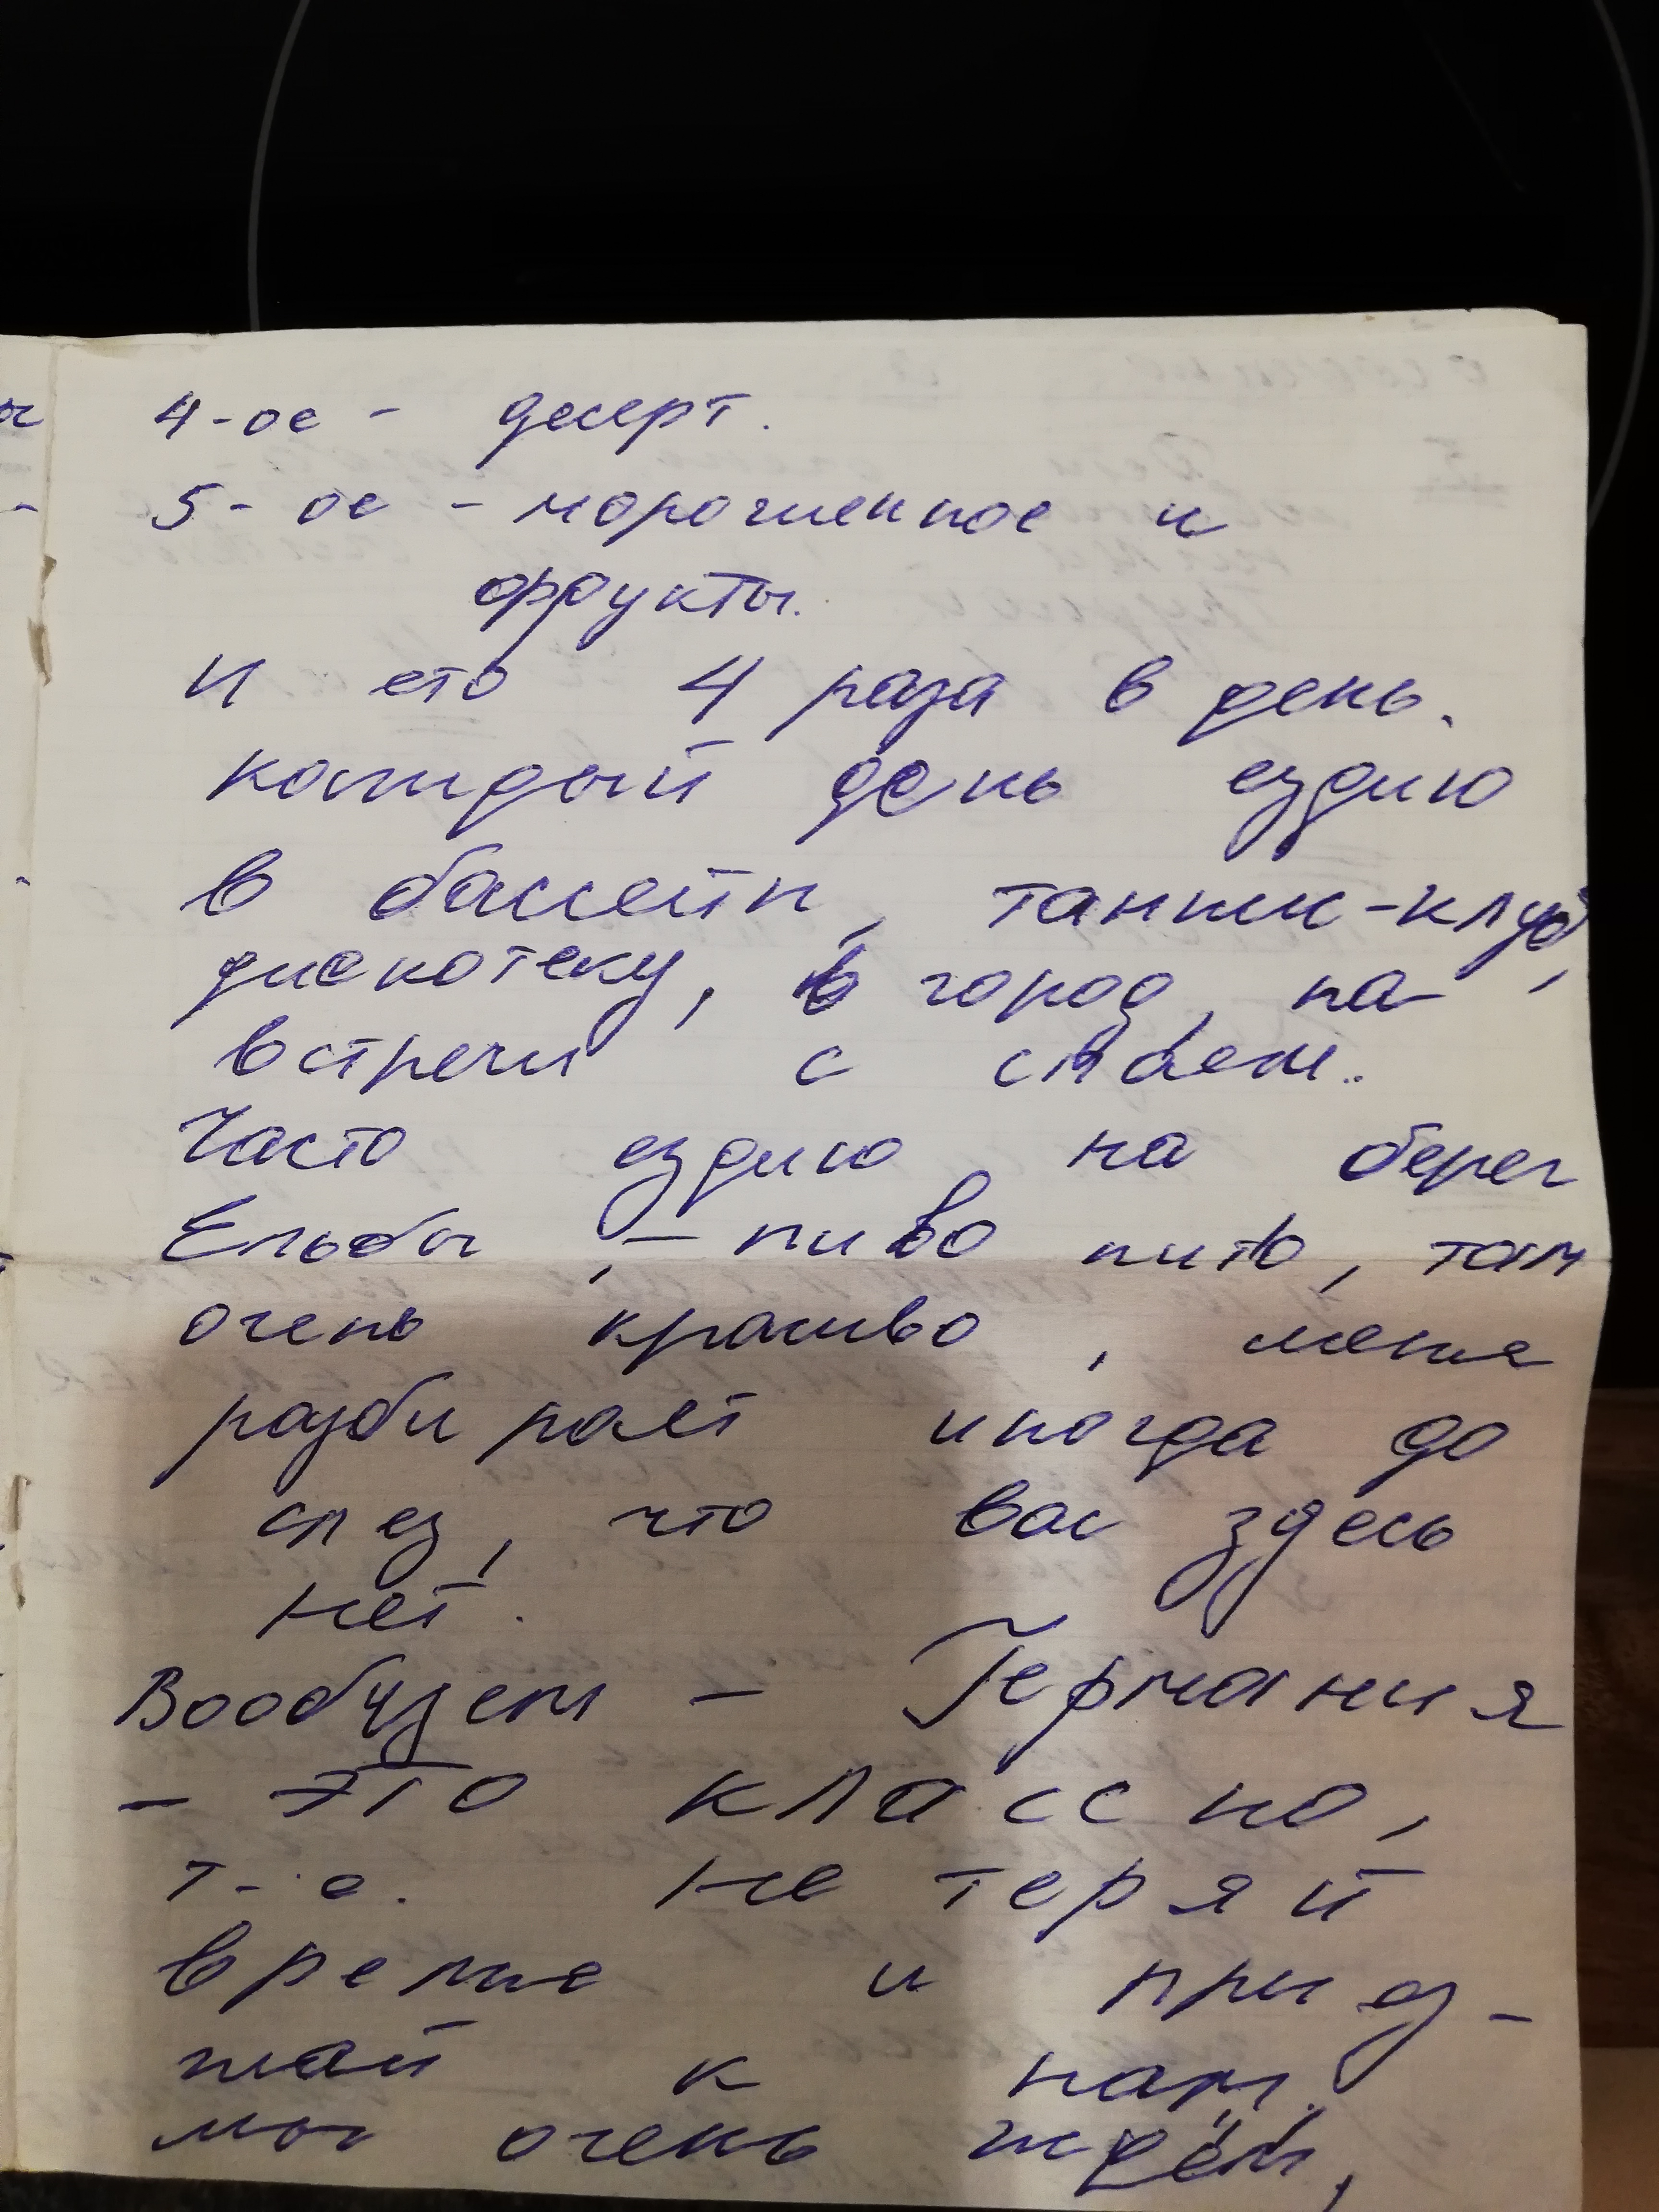 4-ое - десерт.
5-ое - мороженное и
фрукты.
И ето 4 раза в день.
каждый день ездию
в бассейн, танцж-клуб,
дискотеку, в город, на
встречи с
Часто ездию на берег
Ельбы, - пиво пить, там
очень красиво, меня
разбирает иногда до
слез, что вас здесь
нет.
Вообщем - Германия
- это классно,
т.е. не теряй
время и приез-
жай к нам.
мы очень ждём,